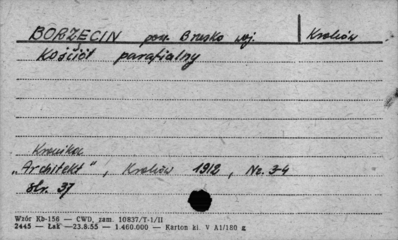 BORZĘCIN pow. Brzesko woj. Kraków
Kościół parafialny
Kronika
„Architekt", Kraków 1912, No. 3-4
str. 37
Wzór Kb-156 — CWD, zam. 10837/T-1/II
2445 — Łak —23.8.55 — 1.460.000 — Karton kl. V A1/180 g